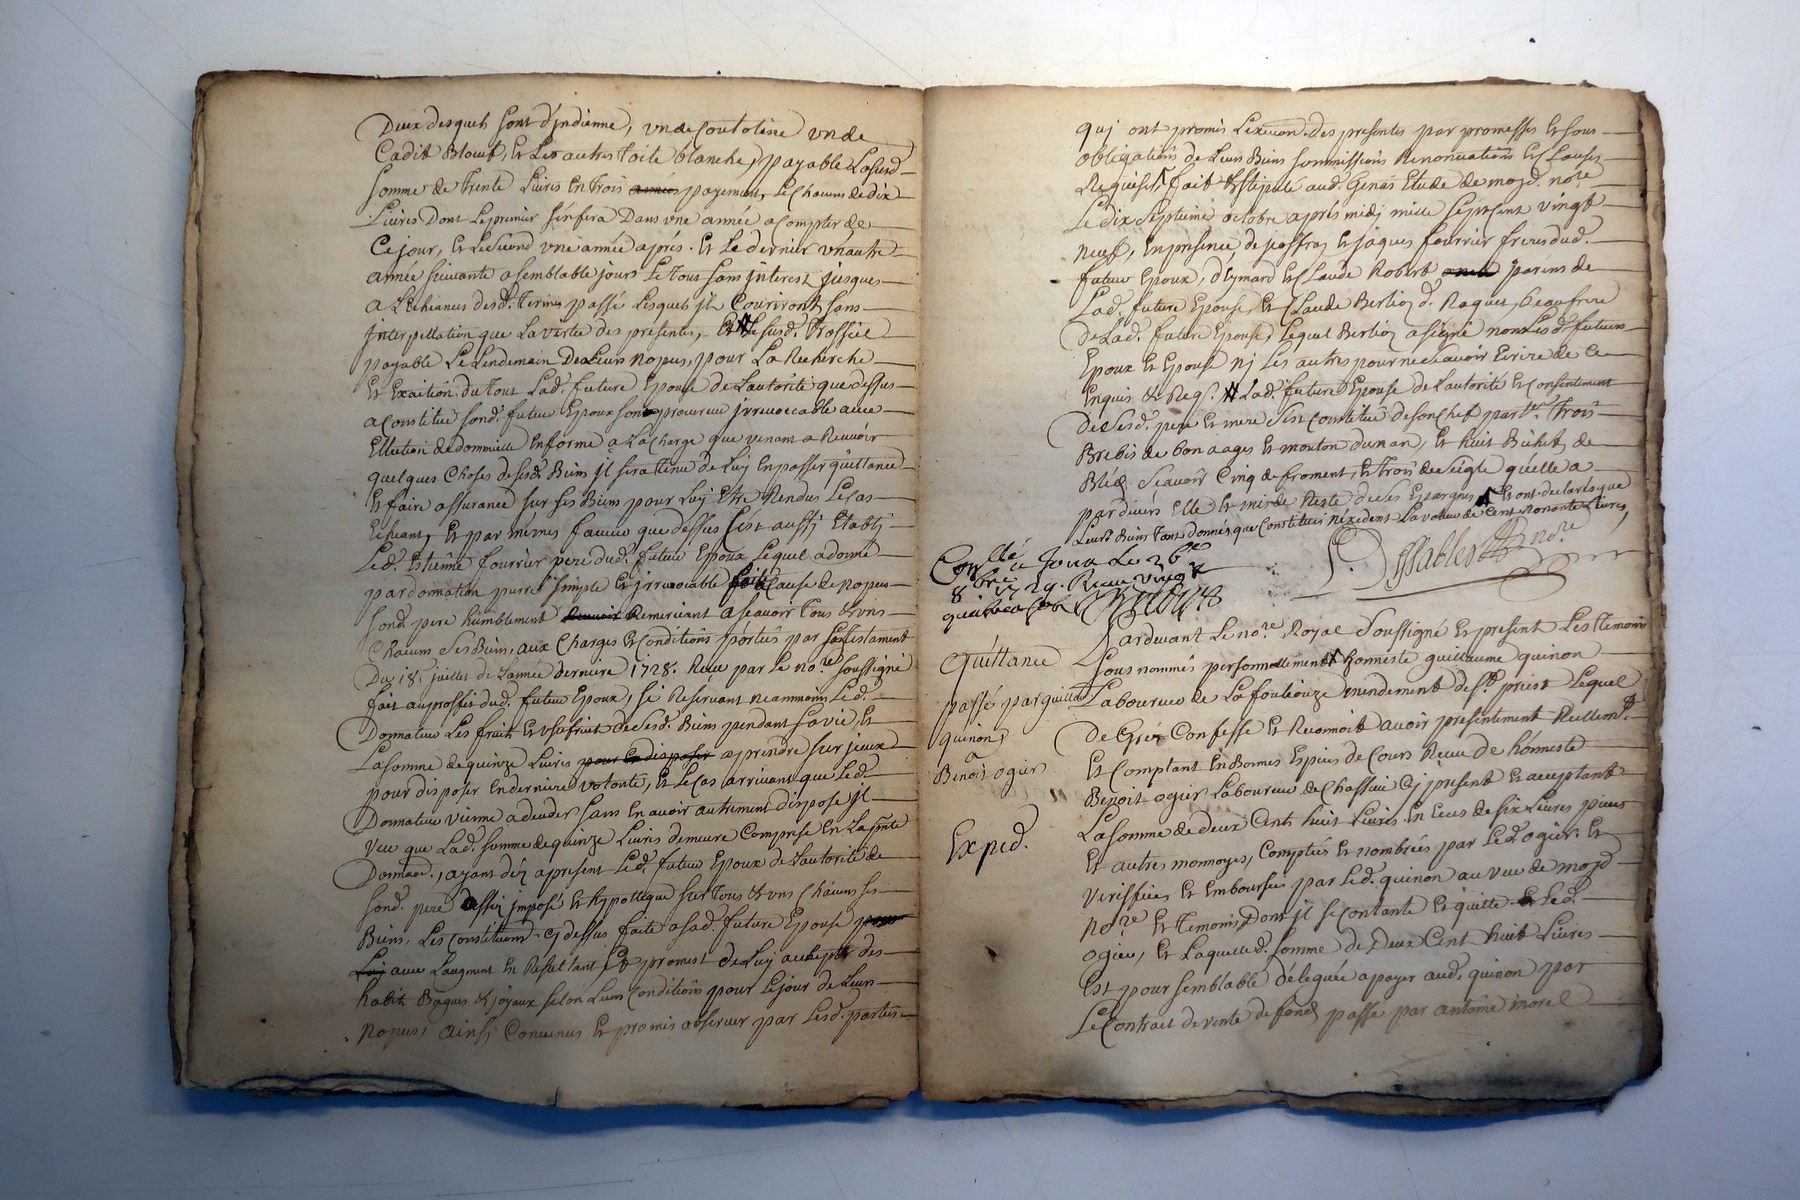 Deux desquels sont d'jndienne, vn de Coutoline vn de
Cadit Blouet, Et Les autres Toile blanche, payable La susd.
somme de Trente Livres En trois payements, Le Chacun de Dix
Livres Dont Le premier se fera Dans vne année a Compter de
Ce jour, Et Le Second vne année aprés. Et Le dernier vn autre
année suivante a semblable jour Le Tout sans jnterest jusques
a L'Echeance desd. Termes passé Lesquels jls Courriront sans
jnterpellation que La vertu des presentes, Et Le susd. Trossel
payable Le Lendemain De Leurs nopces, pour La Recherche
Et Exaction du Tout Lad. future Epouse de L'autorité que dessus
a Constitué sond. futur Epoux son procureur jrrevoccable avec
Ellection de dommicille En forme a La Charge que venant a Recevoir
quelques Choses desesd. Biens jl sera Tenu de Luy En passer quittance
Et faire assurance sur ses Biens pour Luy Etre Rendus Le Cas
Echeant, Et par mémes faveur que dessus s'est aussi Etably
Led. Estienne fourrier pere dud. futur Epoux Lequel a donné
par donnation pure simple Et jrrevocable Cause de nopces
sond. pere humblement Remerciant a scavoir Tous & vns
Chacuns ses Biens, aux Charges Et Conditions portées par son Testament
Du 18. juillet de L'année derniere 1728. Receu par Le no.re soussigné
fait au proffit dud. futur Epoux, se Reservant neanmoins Led.
Donnateur Les fruits Et vsufruit desesd. Biens pendant sa vie, Et
La somme de quinze Livres pour En disposer a prendre sur jceux
pour disposer En derniere volonté, Et Le Cas arrivant que Led.
Donnateur vienne a deceder sans En avoir autrement disposé jl
veu que Lad. somme de quinze Livres demeure Comprise En La p.nte
Donna.on, ayant déz a present Led. futur Epoux de L'autorité de
sond. pere assis jmposé Et hypotteque sur Tous & vns Chacuns ses
Biens, Les Constitutions cy dessus faite a sad. future Epouse
avec L'augment En Resultant Et promet de Luy achepter des
habits Bagues & joyaux selon Leurs Conditions pour Le jour de Leurs
nopces, ainsi Convenus Et promis observer par Lesd. parties
quj ont promis L'execu.on Des presentes par promesses Et sous
obligations de Leurs Biens soummissions Renonciations Et Clauses
Requises, fait & stipulé aud. Genas Etude de moyd. no.re
Le dix Septieme octobre aprés midi mille sept cent vingt
neuf, En presence de joffrey Et jaques fourrier freres dud.
futur Epoux, d'Eymard Et Claude Robert parens de
Lad. future Epouse, Et Claude Berlioz d. Raquet, beaufrere
De Lad. future Epouse, Lequel Berlioz a signé non Lesd. futurs
Epoux Et Epouse nj Les autres pour ne scavoir Ecrire de ce
Enquis & Req. Lad. future Epouse de L'autorité Et Consentement
De sesd. pere Et mere s'en Constitué de son Chef part.er Trois
Brebis de bon aages Et mouton d'un an, Et huit Bichets de
Bléd. Scavoir Cinq de froment, Et Trois de Seigle qu'elle a
pardivers Elle Et mis de Reste de ses Epargnes, Et ont declarés que
Leurs Biens Tant donnés que Constitués n'exedent La valeur de Cent nonante Livres,
Dessables no.re
Con.llé a Jona Le 26.e
8.bre 1729. Receu vingt
Quittance
passé par guill.e
quinon,
a
Benoit ogier
Exped.
Pardevant Le no.re Royal Soussigné Et present Les Temoins
Sous nommés personnellement honneste guillaume quinon
Laboureur de La fouliouze mendement de S.t priest Lequel
De Gré Confesse Et Reconnoit avoir presentement Reellem.t
Et Comptant En Bonnes Espices de Cours Receu de honneste
Benoit ogier Laboureur de Chassieu Cj present Et acceptant
La somme de deux Cents huit Livres. En Ecus de six Livres pieces
Et autres monnoyes, Comptées Et nombrées par Led. ogier. Et
verifiées Et Emboursées par Led. quinon au veu de moyd.
no.re Et Temoins, dont jl se Contante Et quitte Led.
ogier, Et Laquelle d. somme de Deux Cent huit Livres
Est pour semblable déleguée a payer aud. quinon par
Le Contrait de vente de fonds passé par antoine morel